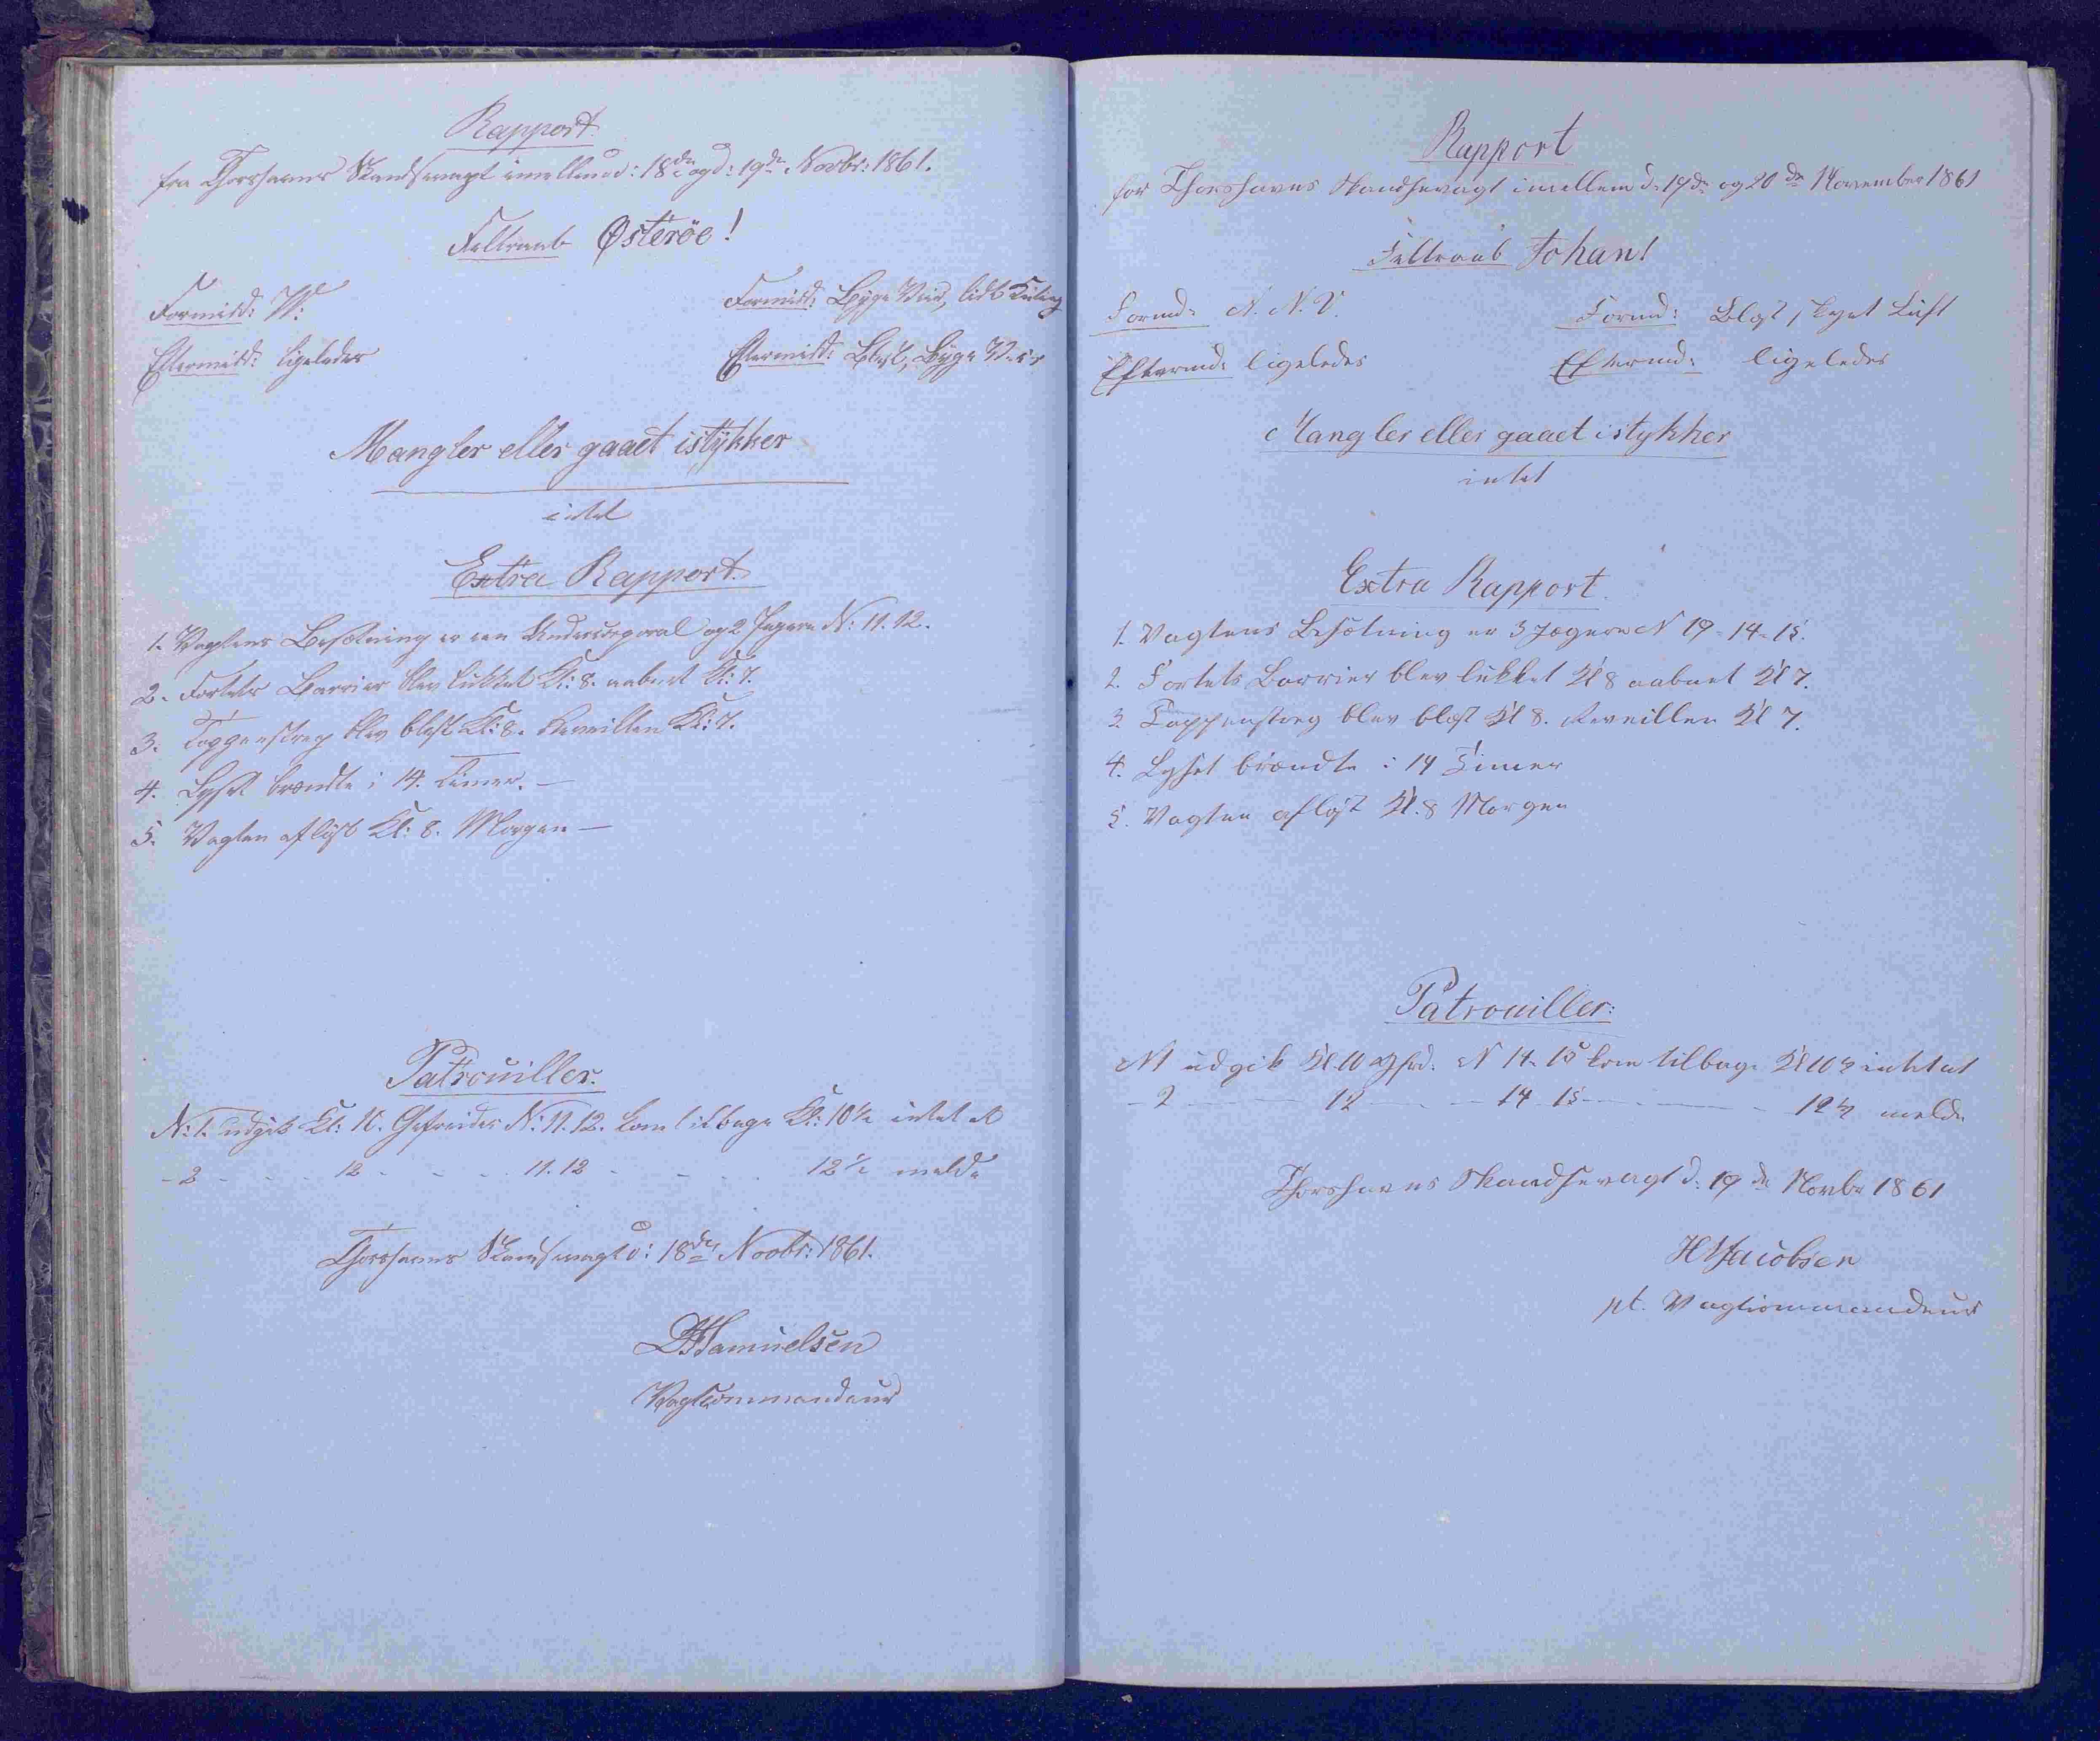 Rapport
fra Thorshavns Skandsevagt imellem d: 18de og d: 19de Novbr: 1861.
Feltraab Østerøe!
Formidd: V: Formidd: Byge Veir, lidt Kuling
Eftermidd: ligeledes Eftermidd: Blæst, Byge Veir
Mangler eller gaaet istykker
intet
Extra Rapport.
1. Vagtens Besætning er een Undercorporal og 2 Jægere N: 11. 12.
2. Fortets Barrier blev lukket Kl: 8. aabnet Kl: 7.
3. Tappenstreg blev blæst Kl: 8. Reveillen Kl: 7.
4. Lyset brændte i 14. Timer. —
5. Vagten afløst Kl: 8. Morgen —
Patrouiller.
N: 1. udgik Kl: 10. Gefreider N: 11. 12. kom tilbage Kl: 10½ intet at
- 2 - - - 12 - - - 11. 12 - - - 12½ melde
Thorshavns Skandsevagt d: 18de Novbr: 1861.
Samuelsen
Vagtcommandeur
Rapport
for Thorshavns Skandsevagt imellem d. 19de og 20de November 1861
Feltraab Johan!
Formd: N. N. V. Formd: Blæst, skyet Luft
Eftermd: ligeledes Eftermd: ligeledes
Mangler eller gaaet istykker
intet
Extra Rapport.
1. Vagtens Besætning er 3 Jægere N 19 - 14 - 15.
2. Fortets Barrier blev lukket Kl 8 aabnet Kl 7.
3. Tappenstreg blev blæst Kl 8. Reveillen Kl 7.
4. Lyset brændte i 14 Timer
5. Vagten afløst Kl. 8 Morgen
Patrouiller:
N 1 udgik Kl. 10 Gfrd. N 14. 15 kom tilbage Kl 10½ intet at
- 2 - - - 12 - - - 14 15 - - - 12½ melde
Thorshavns Skandsevagt d: 19de Novbr 1861
Jacobsen
pt. Vagtcommandeur